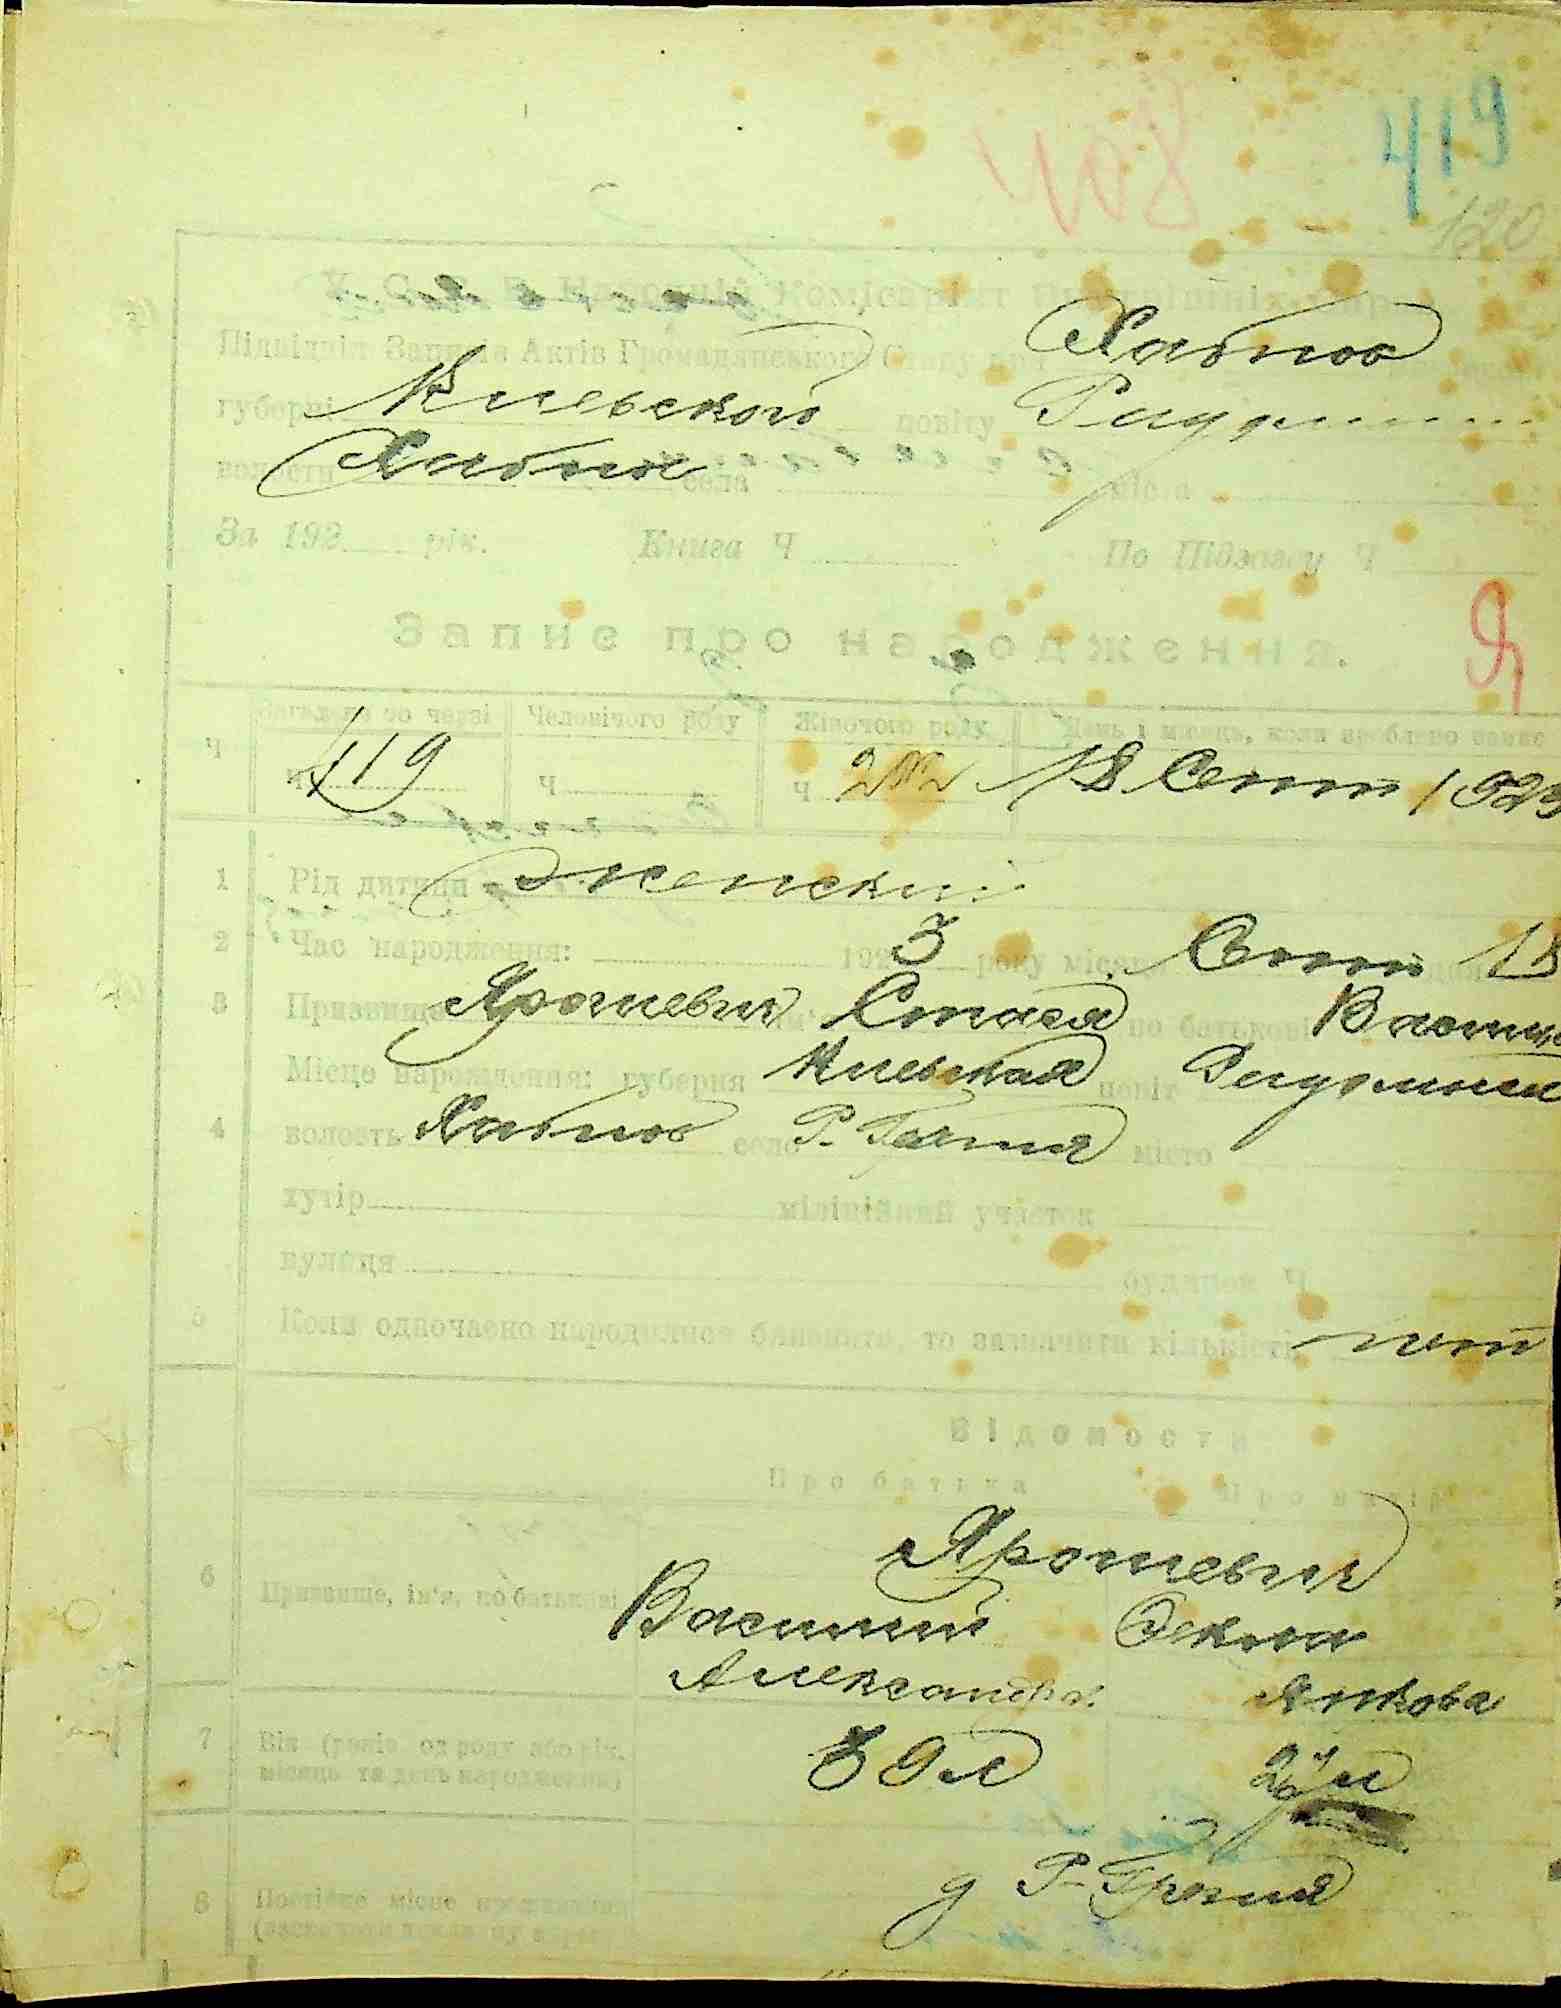 419
408
120
У. С. Р. Р. Народній Комісаріят Внутрішніх Справ
Підвідділ Записів Актів Громадянського Стану при Хабное
губерні Киевского повіту Радомыш
волости Хабное села міста
За 192 рік. Книга Ч По Підзагсу Ч
Запис про народження.
Я
Загально по черзі Чоловічого роду Жіночого роду День і місяць, коли зроблено запис
Ч Ч 419 Ч Ч 202 18 Сент 1923
1 Рід дитини Женский
2 Час народження: 192 3 року місяця Сент 18 дня
3 Призвище Ярошевич ім'я Стася по батькові Васил
Місце народження: губерня Киевская повіт Радомысл
4 волость Хабное село Р. Гатня місто
хутір міліційний участок
вулиця будинок Ч
5 Коли одночасно народилися близнята, то зазначити кількість нет
Відомости
Про батька Про матір
Ярошевич
6 Призвище, ім'я, по батькові Василий Текла
Александр. Янкова
7 Вік (років од роду або рік, 39 л 24 л
місяць та день народження)
д Р-Гатня
8 Постійне місце проживання